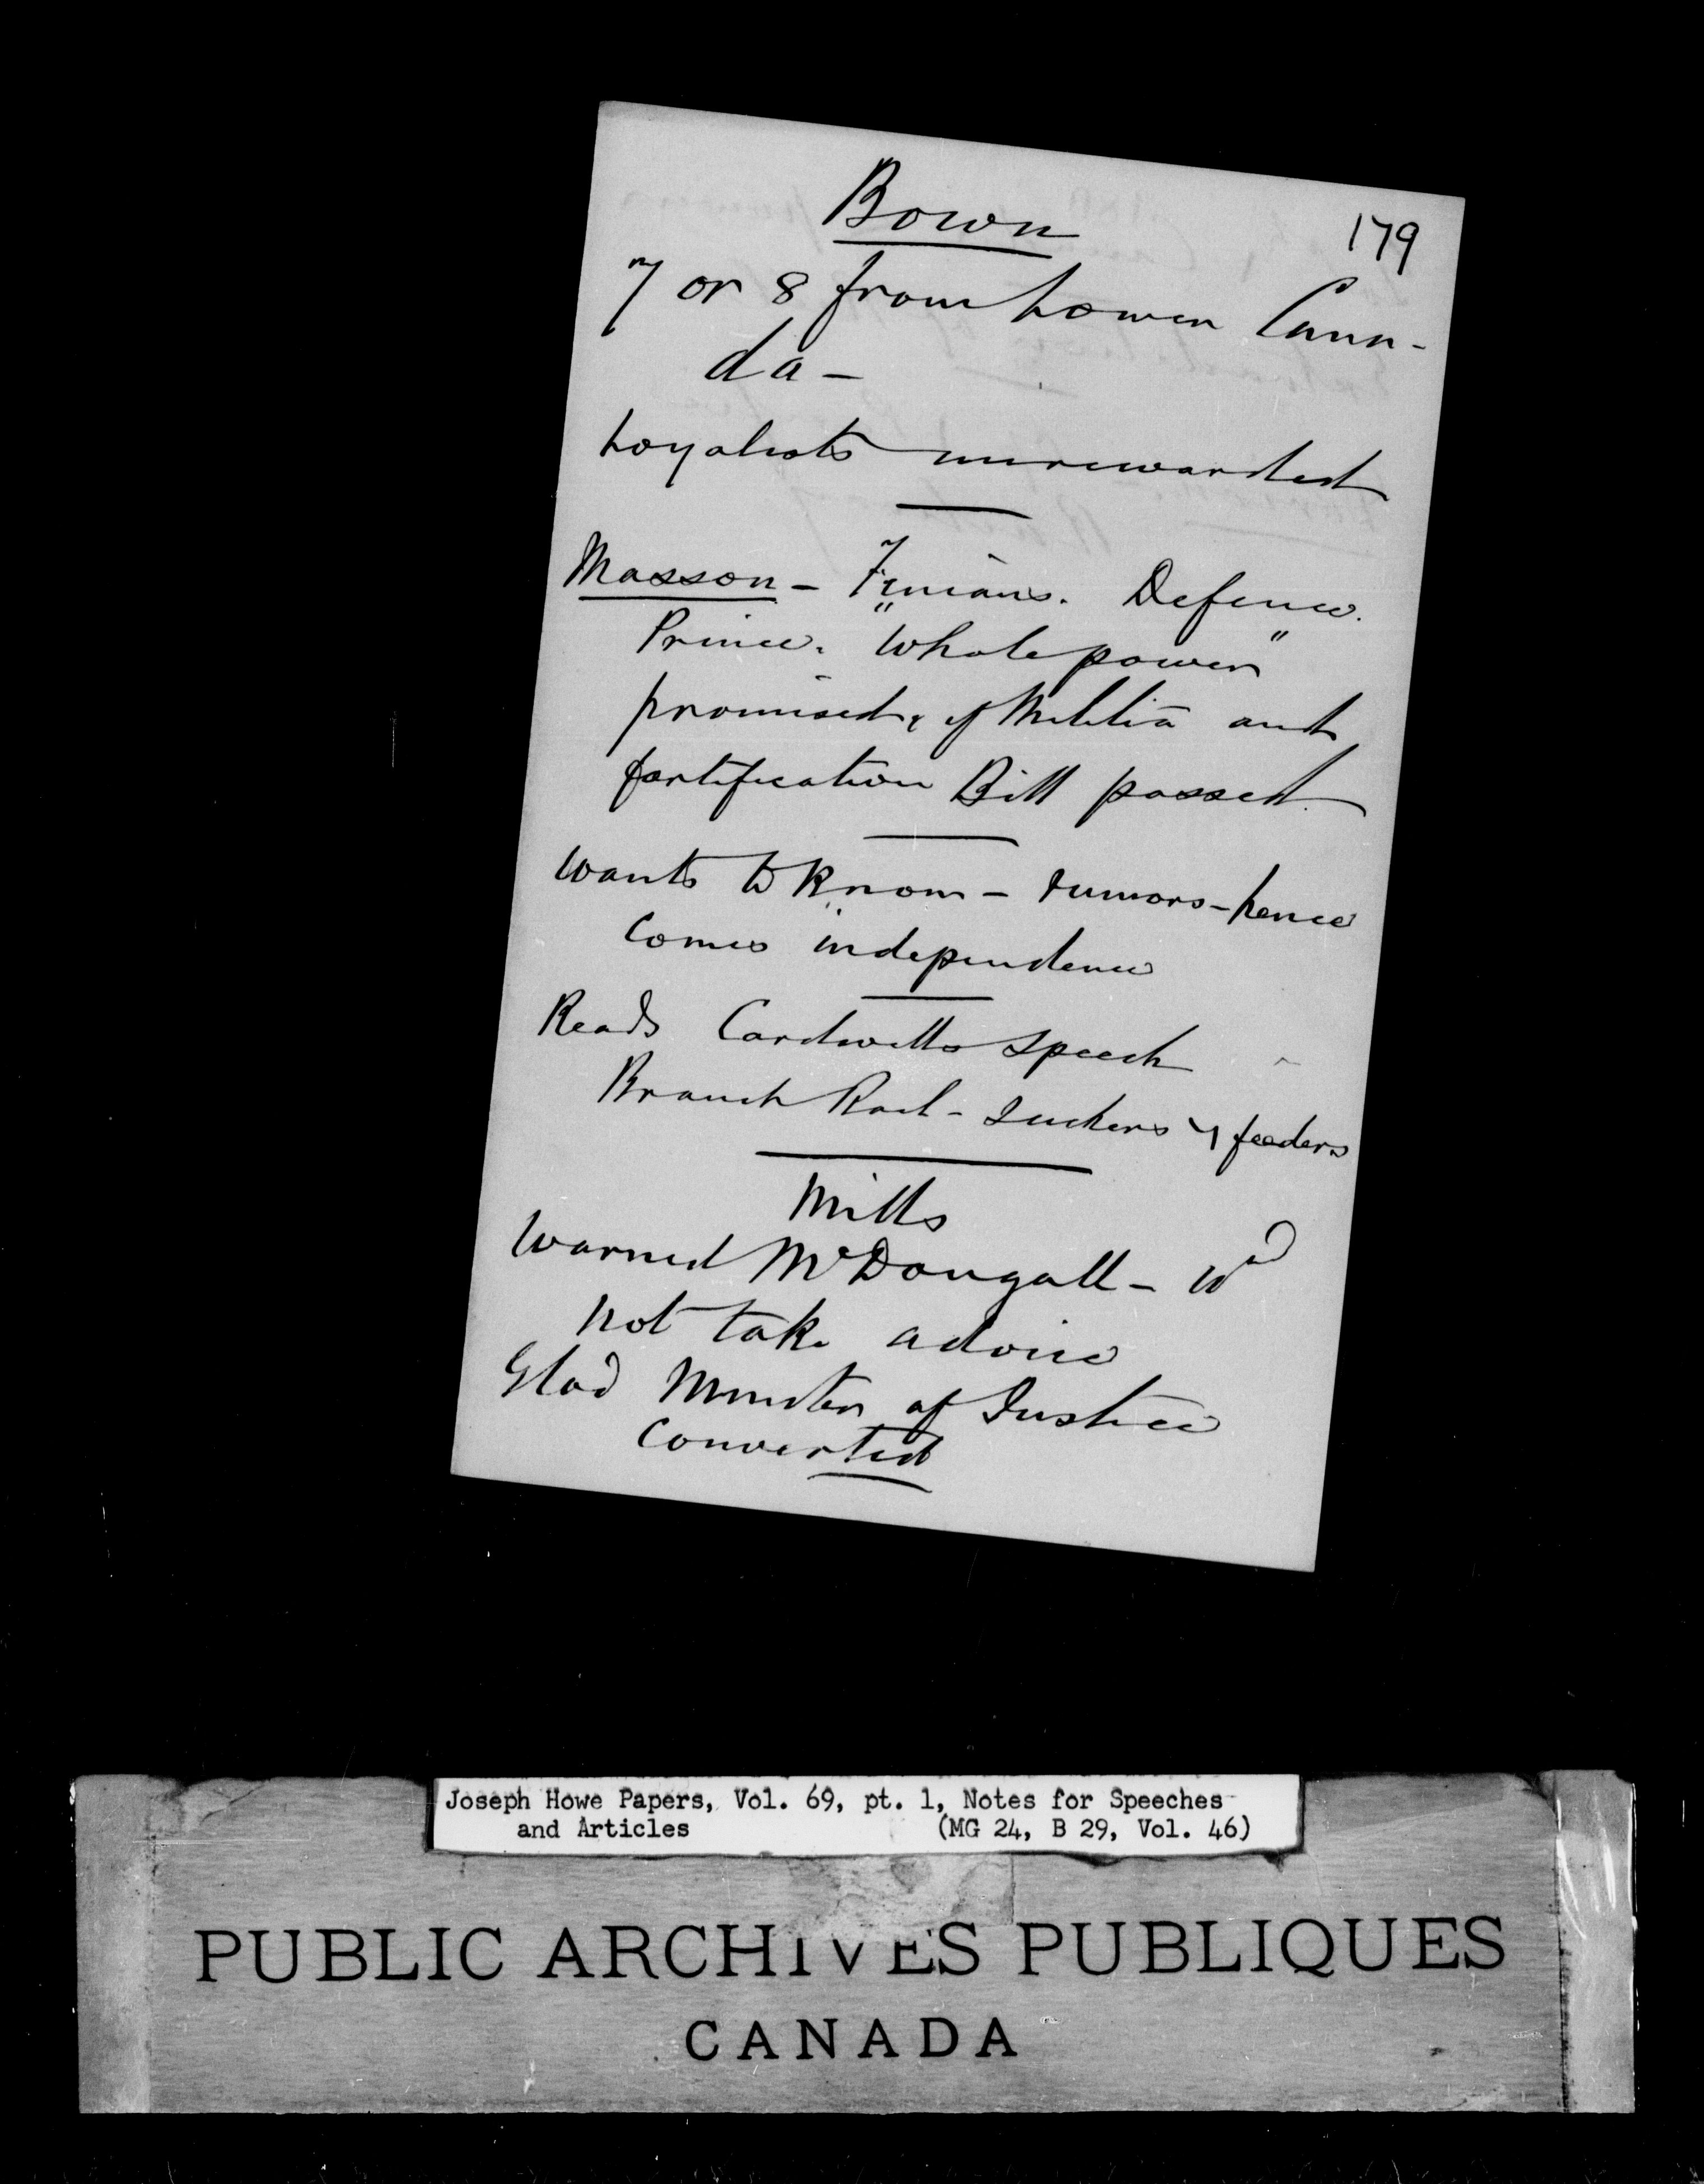 179
Bown
7 or 8 from Lower Cana-
da -
Loyalists unrewarded
Masson - Fenians. Defence.
Prince. "Whole power"
promised, if Militia and
fortification Bill passed
Wants to know - rumors - hence
comes independence
Reads Cardwells speech
Branch Rail - suckers & feeders
Mills
Warned McDougall - wd
not take advice
Glad Minister of Justice
converted
Joseph Howe Papers, Vol. 69, pt. 1, Notes for Speeches
and Articles (MG 24, B 29, Vol. 46)
PUBLIC ARCHIVES PUBLIQUES
CANADA